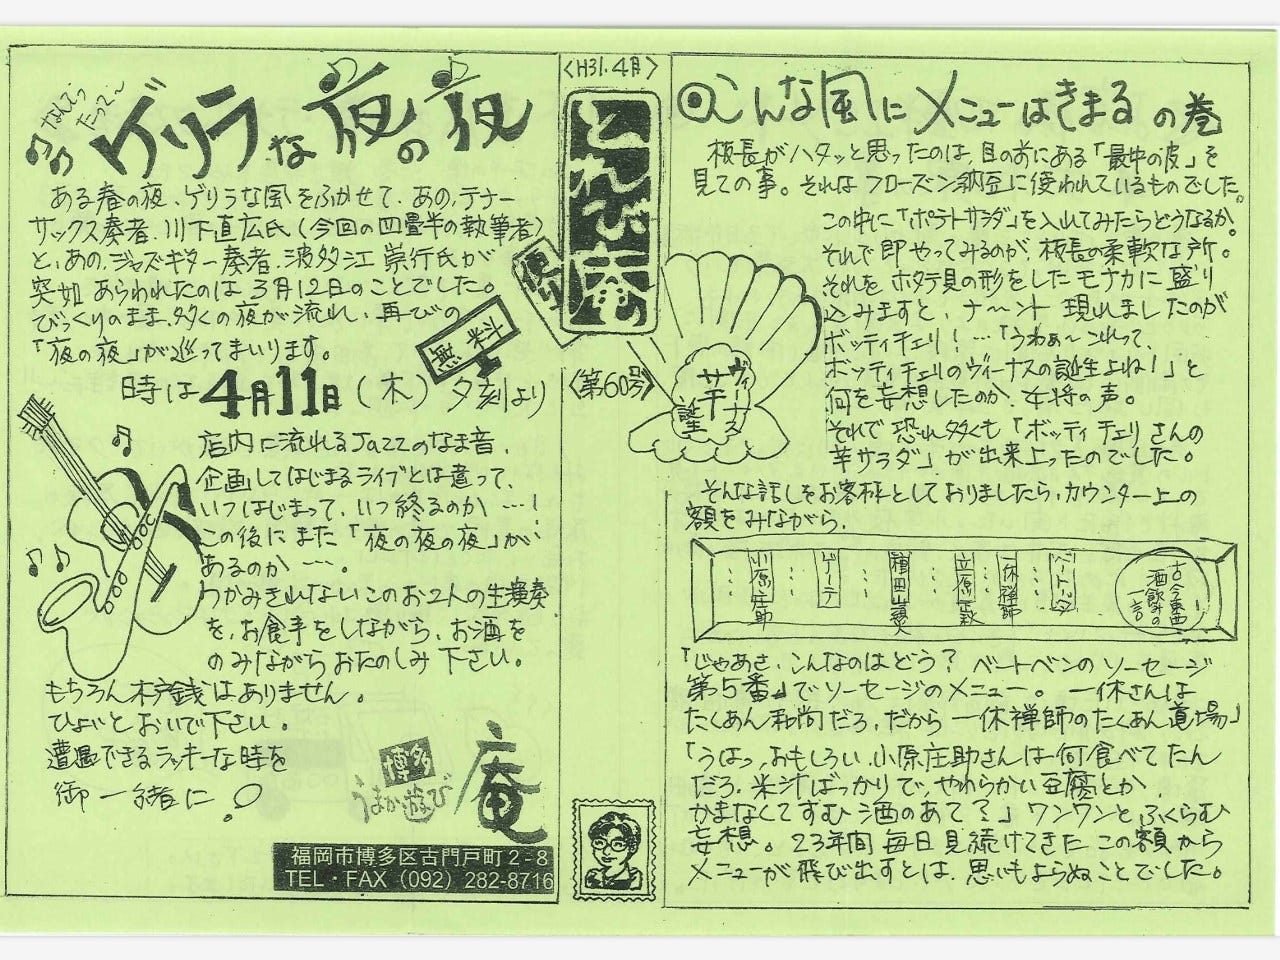 なんてったって〜
ゲリラな夜の夜
ある春の夜、ゲリラな風をふかせて、あの、テナー
サックス奏者、川下直広氏(今回の四畳半の執筆者)
と、あの、ジャズギター奏者、波多江崇行氏が
突如あらわれたのは3月12日のことでした。
びっくりのまま、多くの夜が流れ、再びの
「夜の夜」が巡ってまいります。
時は4月11日(木)夕刻より
店内に流れるJazzのなま音、
企画してはじまるライブとは違って、
いつはじまって、いつ終るのか…!
この後にまた「夜の夜の夜」が、
あるのか…。
つかみきれないこのお2人の生演奏
を、お食事をしながら、お酒を
のみながらおたのしみ下さい。
もちろん木戸銭はありません。
ひょいとおいで下さい。
遭遇できるラッキーな時を
御一緒に!
博多
うまか遊び
庵
福岡市博多区古門戸町2-8
TEL・FAX(092)282-8716
〈H31.4月〉
便り
無料
〈第60号〉
こんな風にメニューはきまるの巻
板長がハタッと思ったのは、目の前にある「最中の皮」を
見ての事。それはフローズン納豆に使われているものでした。
この中に「ポテトサラダ」を入れてみたらどうなるか。
それで即やってみるのが、板長の柔軟な所。
それをホタテ貝の形をしたモナカに盛り
込みますと、ナ〜ント現れましたのが
ボッティチェリ!…「うわぁ〜これって、
ボッティチェリのヴィーナスの誕生よね!」と
何を妄想したのか、女将の声。
それで恐れ多くも「ボッティチェリさんの
芋サラダ」が出来上ったのでした。
ヴィーナス
芋
誕
そんな話しをお客様としておりましたら、カウンター上の
額をみながら、
小原庄助
ゲーテ
種田山頭火
立原正秋
一休禅師
ベートーベン
古今東西
酒飲みの
一言
「じゃあさ、こんなのはどう? ベートベンのソーセージ
第5番」でソーセージのメニュー。 一休さんは
たくあん和尚だろ、だから一休禅師のたくあん道場」
「うはっ、おもしろい、小原庄助さんは何食べてたん
だろ、米汁ばっかりで、やわらかい豆腐とか、
かまなくてすむ酒のあて?」ワンワンとふくらむ
妄想。23年間毎日見続けてきたこの額から
メニューが飛び出すとは、思いもよらぬことでした。